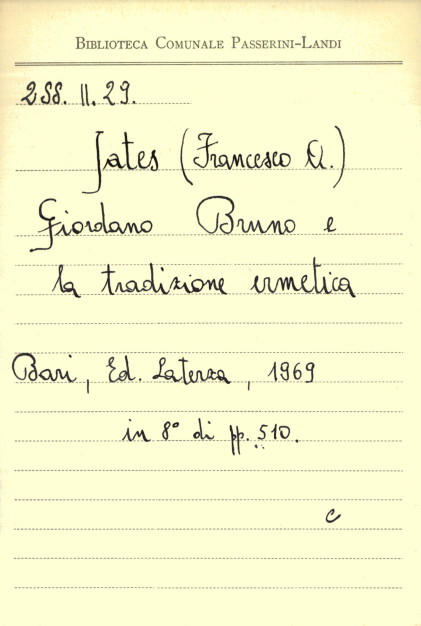 BIBLIOTECA COMUNALE PASSERINI-LANDI
2SS. II. 29.
Jates (Francesco A.)
Giordano Bruno e
la tradizione ermetica
Bari, Ed. Laterza, 1969
in 8° di pp. 510.
c